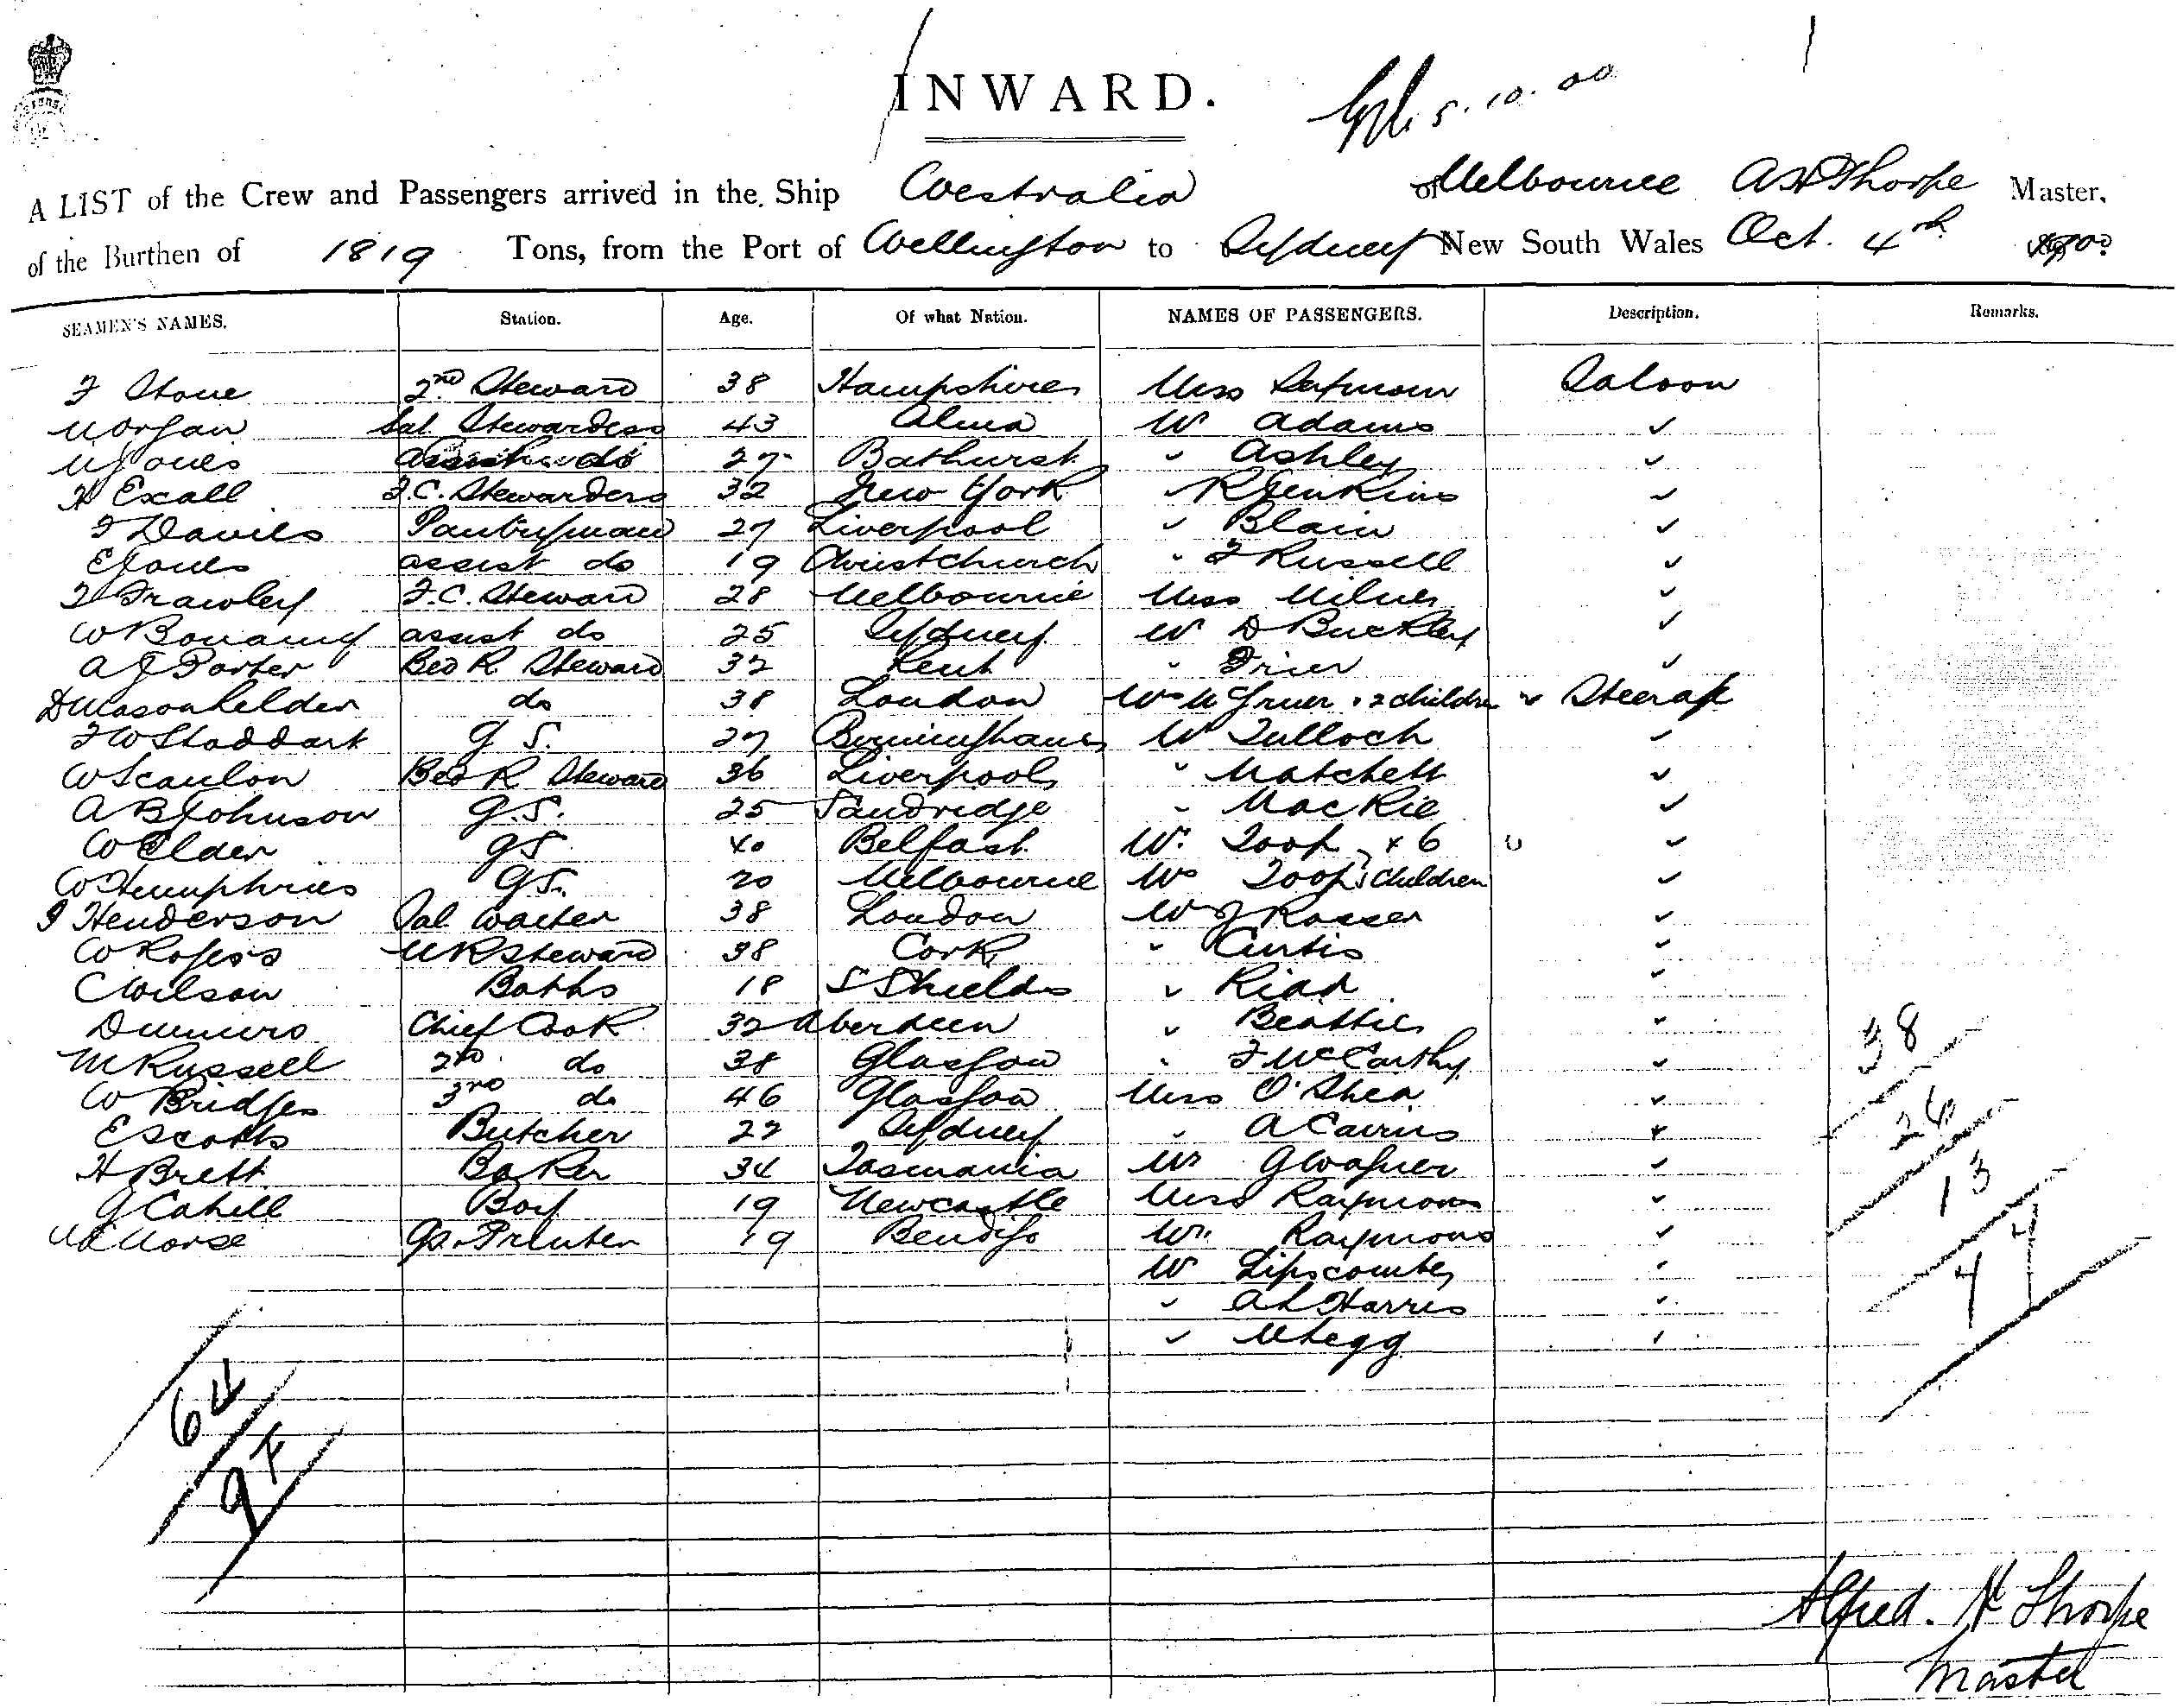 INWARD.
5.10.00
A LIST of the Crew and Passengers arrived in the Ship Westralia of Melbourne A H Thorpe Master,
of the Burthen of 1819 Tons, from the Port of Wellington to Sydney New South Wales Oct. 4th 1900
SEAMEN'S NAMES. Station. Age. Of what Nation. NAMES OF PASSENGERS. Description. Remarks.
F Stone 2nd Steward 38 Hampshire Miss Seymour Saloon
M Organ Sal Stewardess 43 Alma Mr Adams ✓
M Jones Assist do 27 Bathurst " Ashley ✓
H Excall F.C. Stewardess 32 New York " R Jenkins ✓
F Davies Pantryman 27 Liverpool " Blain ✓
E Jones assist do 19 Christchurch " F Russell ✓
T Frawley F.C. Steward 28 Melbourne Miss Milner ✓
W Bonamy assist do 25 Sydney Mr D Buckley ✓
A J Porter Bed R. Steward 32 Kent " Frier ✓
D Masonhelder do 38 London Mrs McGruer & 2 children Steerage
F W Stoddart G S. 27 Birmingham Mr Tulloch ✓
W Scanlon Bed R Steward 36 Liverpool " Matchett ✓
A B Johnson G.S. 25 Sandridge " MacKie ✓
W Elder GS 40 Belfast Mr. Toop & 6 ✓
W Humphries GS. 20 Melbourne Mrs Toop children ✓
J Henderson Sal Waiter 38 London Mr J Rosser ✓
W Rogers MR Steward 38 Cork " Curtis ✓
C Wilson Baths 18 S Shields " Riad ✓
D Munro Chief Cook 32 Aberdeen " Beattie ✓
M Russell 2nd do 38 Glasgow " F McCarthy ✓
W Bridges 3rd do 46 Glasgow Miss O'Shea ✓
E Scotts Butcher 22 Sydney " A Cairns ✓
H Brett Baker 34 Tasmania Mr G Wagner ✓
G Cahill Boy 19 Newcastle Miss Raymond ✓
Morse Printer 19 Bendigo Mr. Raymond ✓
Mr Lipscombe ✓
" A L Harris ✓
" M Legg ✓
38
26
13
4
4
64
9 F
Alfred. H Thorpe
Master